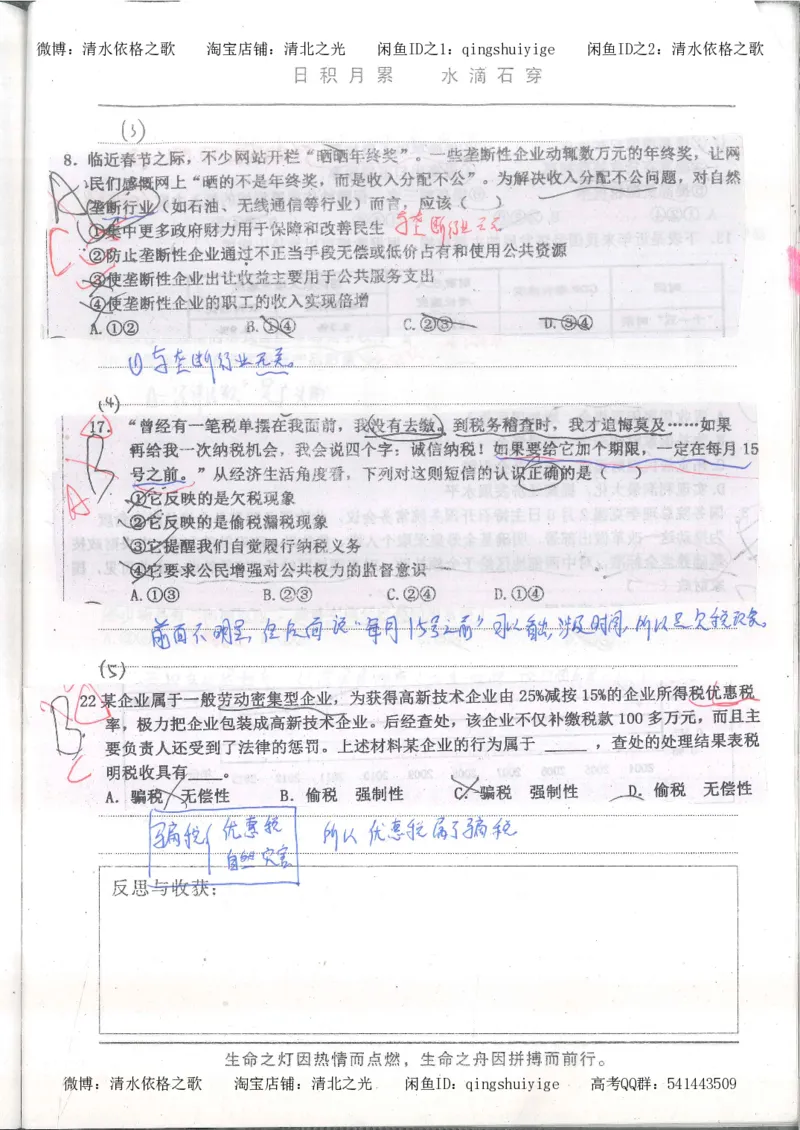 微博：清水依格之歌 淘宝店铺：清北之光 闲鱼ID之1：qingshuiyige 闲鱼ID之2：清水依格之歌
日积月累 水滴石穿
(3)
8. 临近春节之际，不少网站开栏“晒晒年终奖”。一些垄断性企业动辄数万元的年终奖，让网
民们感慨网上“晒的不是年终奖，而是收入分配不公”。为解决收入分配不公问题，对自然
垄断行业（如石油、无线通信等行业）而言，应该（ ）
①集中更多政府财力用于保障和改善民生 与垄断行业无关
②防止垄断性企业通过不正当手段无偿或低价占有和使用公共资源
③使垄断性企业出让收益主要用于公共服务支出
④使垄断性企业的职工的收入实现倍增
A.①② B.①④ C.②③ D.③④
A
C
①与垄断行业无关。
(4)
17. “曾经有一笔税单摆在我面前，我没有去缴。到税务稽查时，我才追悔莫及……如果
再给我一次纳税机会，我会说四个字：诚信纳税！如果要给它加个期限，一定在每月 15
号之前。”从经济生活角度看，下列对这则短信的认识正确的是（ ）
①它反映的是欠税现象
②它反映的是偷税漏税现象
③它提醒我们自觉履行纳税义务
④它要求公民增强对公共权力的监督意识
A.①③ B.②③ C.②④ D.①④
B
A
前面不明显，但后面说“每月15号之前”可以看出，涉及时间，所以是欠税现象。
(5)
22 某企业属于一般劳动密集型企业，为获得高新技术企业由 25%减按 15%的企业所得税优惠税
率，极力把企业包装成高新技术企业。后经查处，该企业不仅补缴税款 100 多万元，而且主
要负责人还受到了法律的惩罚。上述材料某企业的行为属于 ____ ，查处的处理结果表税
明税收具有____。
A. 骗税 无偿性 B. 偷税 强制性 C. 骗税 强制性 D. 偷税 无偿性
B
C
骗税{ 优惠税 所以优惠税属于骗税
自然灾害
反思与收获：
生命之灯因热情而点燃，生命之舟因拼搏而前行。
微博：清水依格之歌 淘宝店铺：清北之光 闲鱼ID：qingshuiyige 高考QQ群：541443509